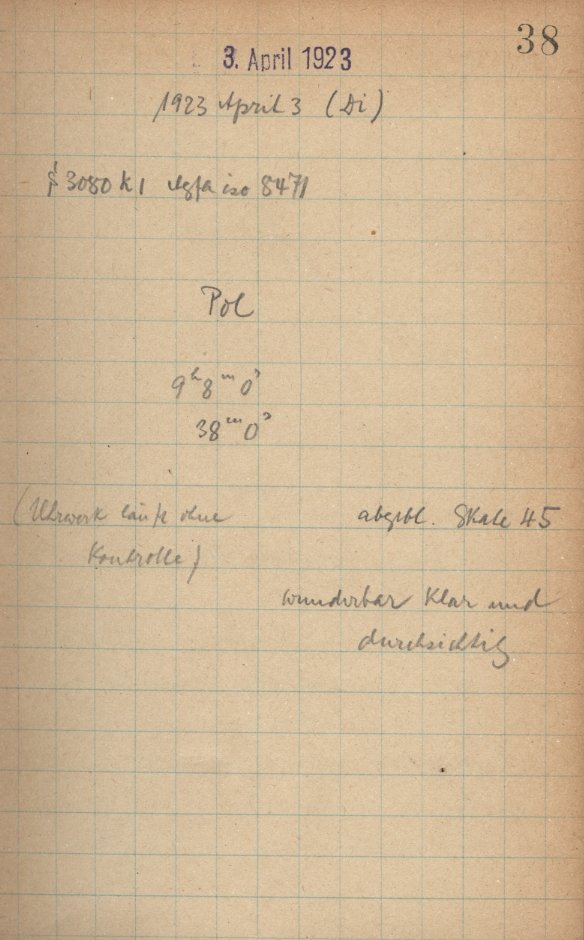 38
3. April 1923
1923 April 3 (Di)
3080 K 1 Agfa iso 8471
Pol
9h 8m 0s
38m 0s
(Uhrwerk läuft ohne
Kontrolle)
abgebl. Skale 45
wunderbar klar und
durchsichtig